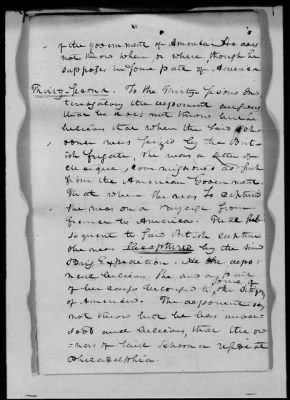 of the government of America He does
not know when or where, though he
supposes in some part of America
Thirty-Second. To the Thirty Second In-
terrogatory the deponent answers
that he does not know but he
believes that when the said Scho-
oner was seized by the Brit-
ish frigate, She was a letter of
Marque, commissioned as such
from the American Government
That when She was so captured
She was on a voyage from
France to America. That Sub-
sequent to said British capture
She was Recaptured by the
Brig Expedition. He the depo-
nent believes She and a part
of her cargo belonged to some of the Citizens
of America. The deponent says
not know but he has under-
stood and believes, that the ow-
ners of said Schooner reside at
Philadelphia.